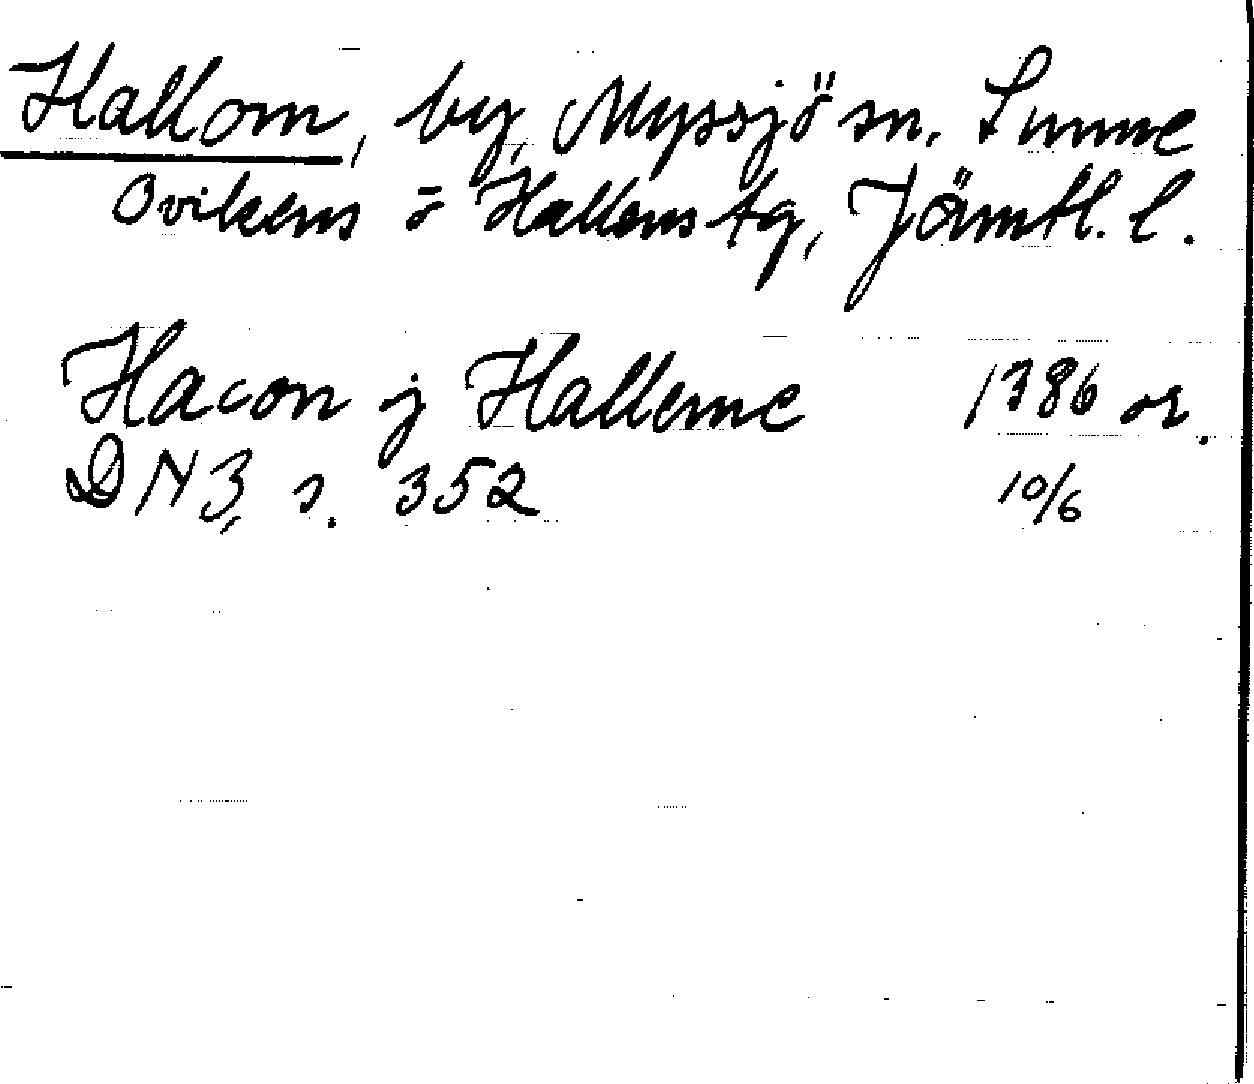 Hallom, by, Myssjö sn. Sunne
Ovikens o Hallens tg, Jämtl. l.
Hacon j Hallerne 1386 or.
DN 3, s. 352 10/6